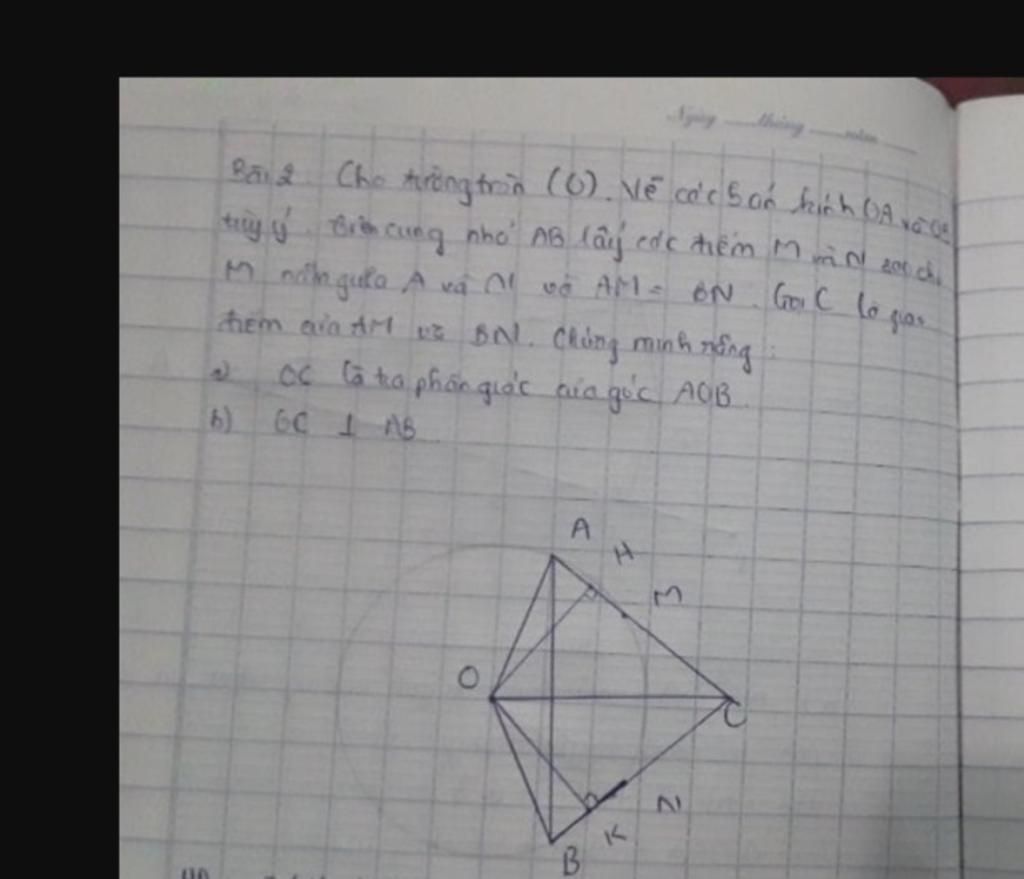 Ngày tháng năm
Bài 2 Cho đường tròn (O). Vẽ các bán kính OA và OB
tùy ý. trên cung nhỏ AB lấy các điểm M và N sao cho
M nằm giữa A và N và AM = BN. Gọi C là giao
điểm của AM và BN. Chứng minh rằng :
a) OC là tia phân giác của góc AOB
b) OC ⊥ AB
A
H
M
O
C
N
K
B